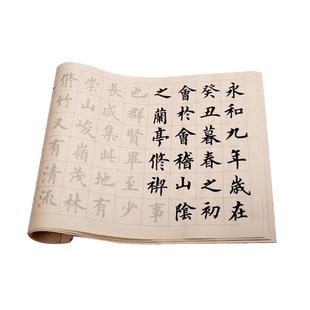 永和九年歲在
癸丑暮春之初
會於會稽山陰
之蘭亭脩禊事
也群賢畢至少
長咸集此地有
崇山峻嶺茂林
脩竹又有清流